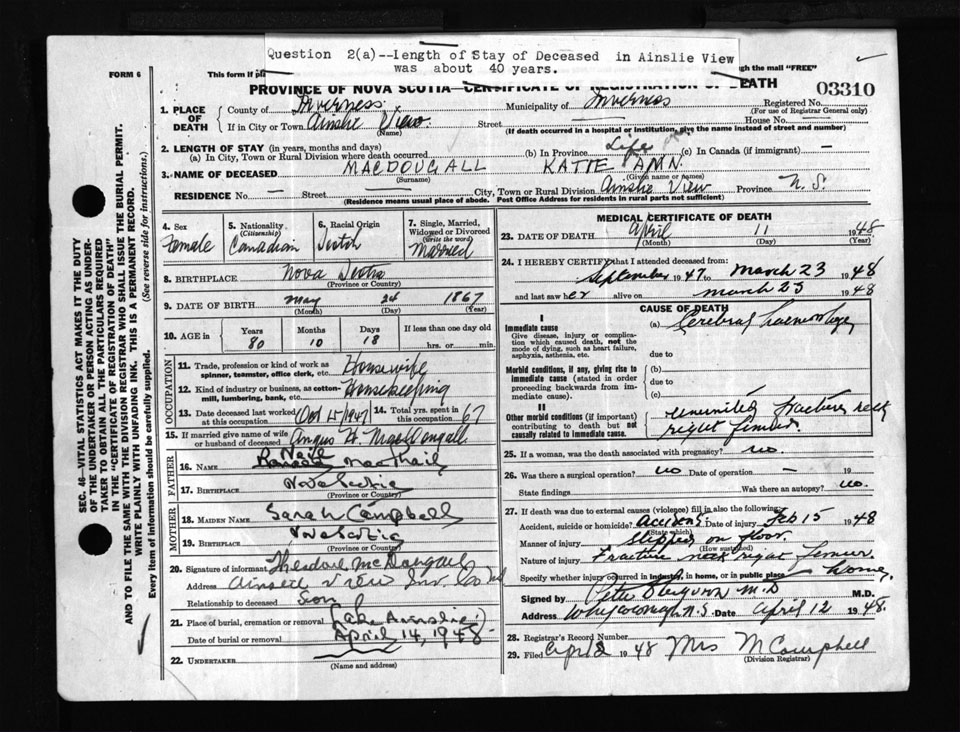 Question 2(a)--length of Stay of Deceased in Ainslie View
was about 40 years.
FORM 6
This form if
through the mail "FREE"
PROVINCE OF NOVA SCOTIA—CERTIFICATE OF REGISTRATION OF DEATH
03310
1. PLACE OF DEATH
County of Inverness
Municipality of Inverness
Registered No.
(For use of Registrar General only)
If in City or Town Ainslie View
(Name)
Street
House No.
(If death occurred in a hospital or institution, give name instead of street and number)
2. LENGTH OF STAY (in years, months and days)
(a) In City, Town or Rural Division where death occurred
(b) In Province Life
(c) In Canada (if immigrant) —
3. NAME OF DECEASED MACDOUGALL KATIE ANN.
(Surname) (Given name or names)
RESIDENCE No. — Street City, Town or Rural Division Ainslie View Province N. S.
(Residence means usual place of abode. Post Office Address for residents in rural parts not sufficient)
4. Sex
Female
5. Nationality
(Citizenship)
Canadian
6. Racial Origin
Scotch
7. Single, Married, Widowed or Divorced
(Write the word)
Married
8. BIRTHPLACE Nova Scotia
(Province or Country)
9. DATE OF BIRTH May 24 1867
(Month) (Day) (Year)
10. AGE in
Years Months Days If less than one day old
80 10 18 hrs. or min.
OCCUPATION
11. Trade, profession or kind of work as spinner, teamster, office clerk, etc. Housewife
12. Kind of industry or business, as cotton-mill, lumbering, bank, etc. Housekeeping
13. Date deceased last worked at this occupation Oct 15/1947
14. Total yrs. spent in this occupation 67
15. If married give name of wife or husband of deceased Angus H. MacDougall
FATHER
16. NAME Neil MacPhail
17. BIRTHPLACE Nova Scotia
(Province or Country)
MOTHER
18. MAIDEN NAME Sarah Campbell
19. BIRTHPLACE Nova Scotia
(Province or Country)
20. Signature of informant Theodore McDougall
Address Ainslie View Inv. Co NS
Relationship to deceased Son
21. Place of burial, cremation or removal Lake Ainslie
Date of burial or removal April 14, 1948
22. UNDERTAKER
(Name and address)
MEDICAL CERTIFICATE OF DEATH
23. DATE OF DEATH April 11 1948
(Month) (Day) (Year)
24. I HEREBY CERTIFY that I attended deceased from:
September 1947 to March 23 1948
and last saw her alive on March 23 1948
CAUSE OF DEATH
I
Immediate cause
Give disease, injury or complication which caused death, not the mode of dying, such as heart failure, asphyxia, asthenia, etc.
(a) Cerebral haemorrhage
due to
Morbid conditions, if any, giving rise to immediate cause (stated in order proceeding backwards from immediate cause).
(b)
due to
(c)
II
Other morbid conditions (if important) contributing to death but not causally related to immediate cause.
ununited fracture neck
right femur.
25. If a woman, was the death associated with pregnancy? no.
26. Was there a surgical operation? no Date of operation — 19
State findings Was there an autopsy? no.
27. If death was due to external causes (violence) fill in also the following:
Accident, suicide or homicide? accident Date of injury Feb 15 1948
(State which)
Manner of injury slipped on floor.
(How sustained)
Nature of injury Fracture neck right femur
Specify whether injury occurred in industry, in home, or in public place home,
Signed by M.D M.D.
Address Whycocomagh N.S. Date April 12 1948.
28. Registrar's Record Number
29. Filed April 1948 Mrs M Campbell
(Division Registrar)
SEC. 46—VITAL STATISTICS ACT MAKES IT THE DUTY
OF THE UNDERTAKER OR PERSON ACTING AS UNDER-
TAKER TO OBTAIN ALL THE PARTICULARS REQUIRED
IN THE "CERTIFICATE OF REGISTRATION OF DEATH"
AND TO FILE THE SAME WITH THE DIVISION REGISTRAR WHO SHALL ISSUE THE BURIAL PERMIT.
WRITE PLAINLY WITH UNFADING INK. THIS IS A PERMANENT RECORD.
Every item of information should be carefully supplied. (See reverse side for instructions.)